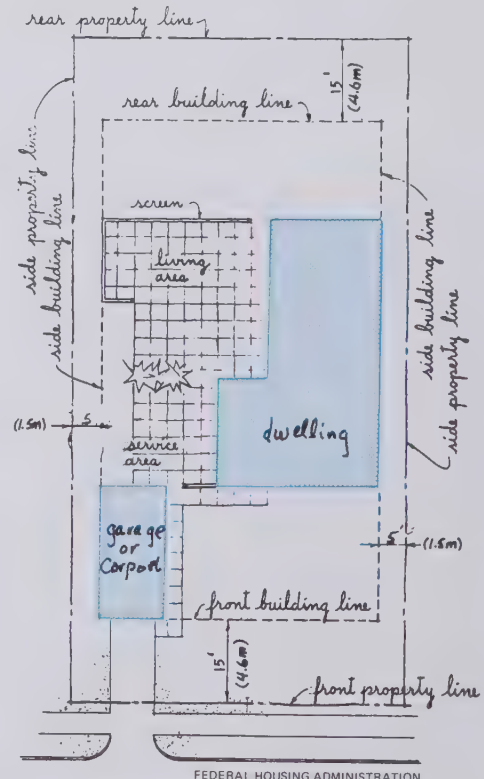 rear property line
15'
(4.6m)
rear building line
side property line
side building line
screen
living
area
side building line
side property line
(1.5m)
5
service
area
dwelling
garage
or
Carport
5'
(1.5m)
front building line
15'
(4.6m)
front property line
FEDERAL HOUSING ADMINISTRATION